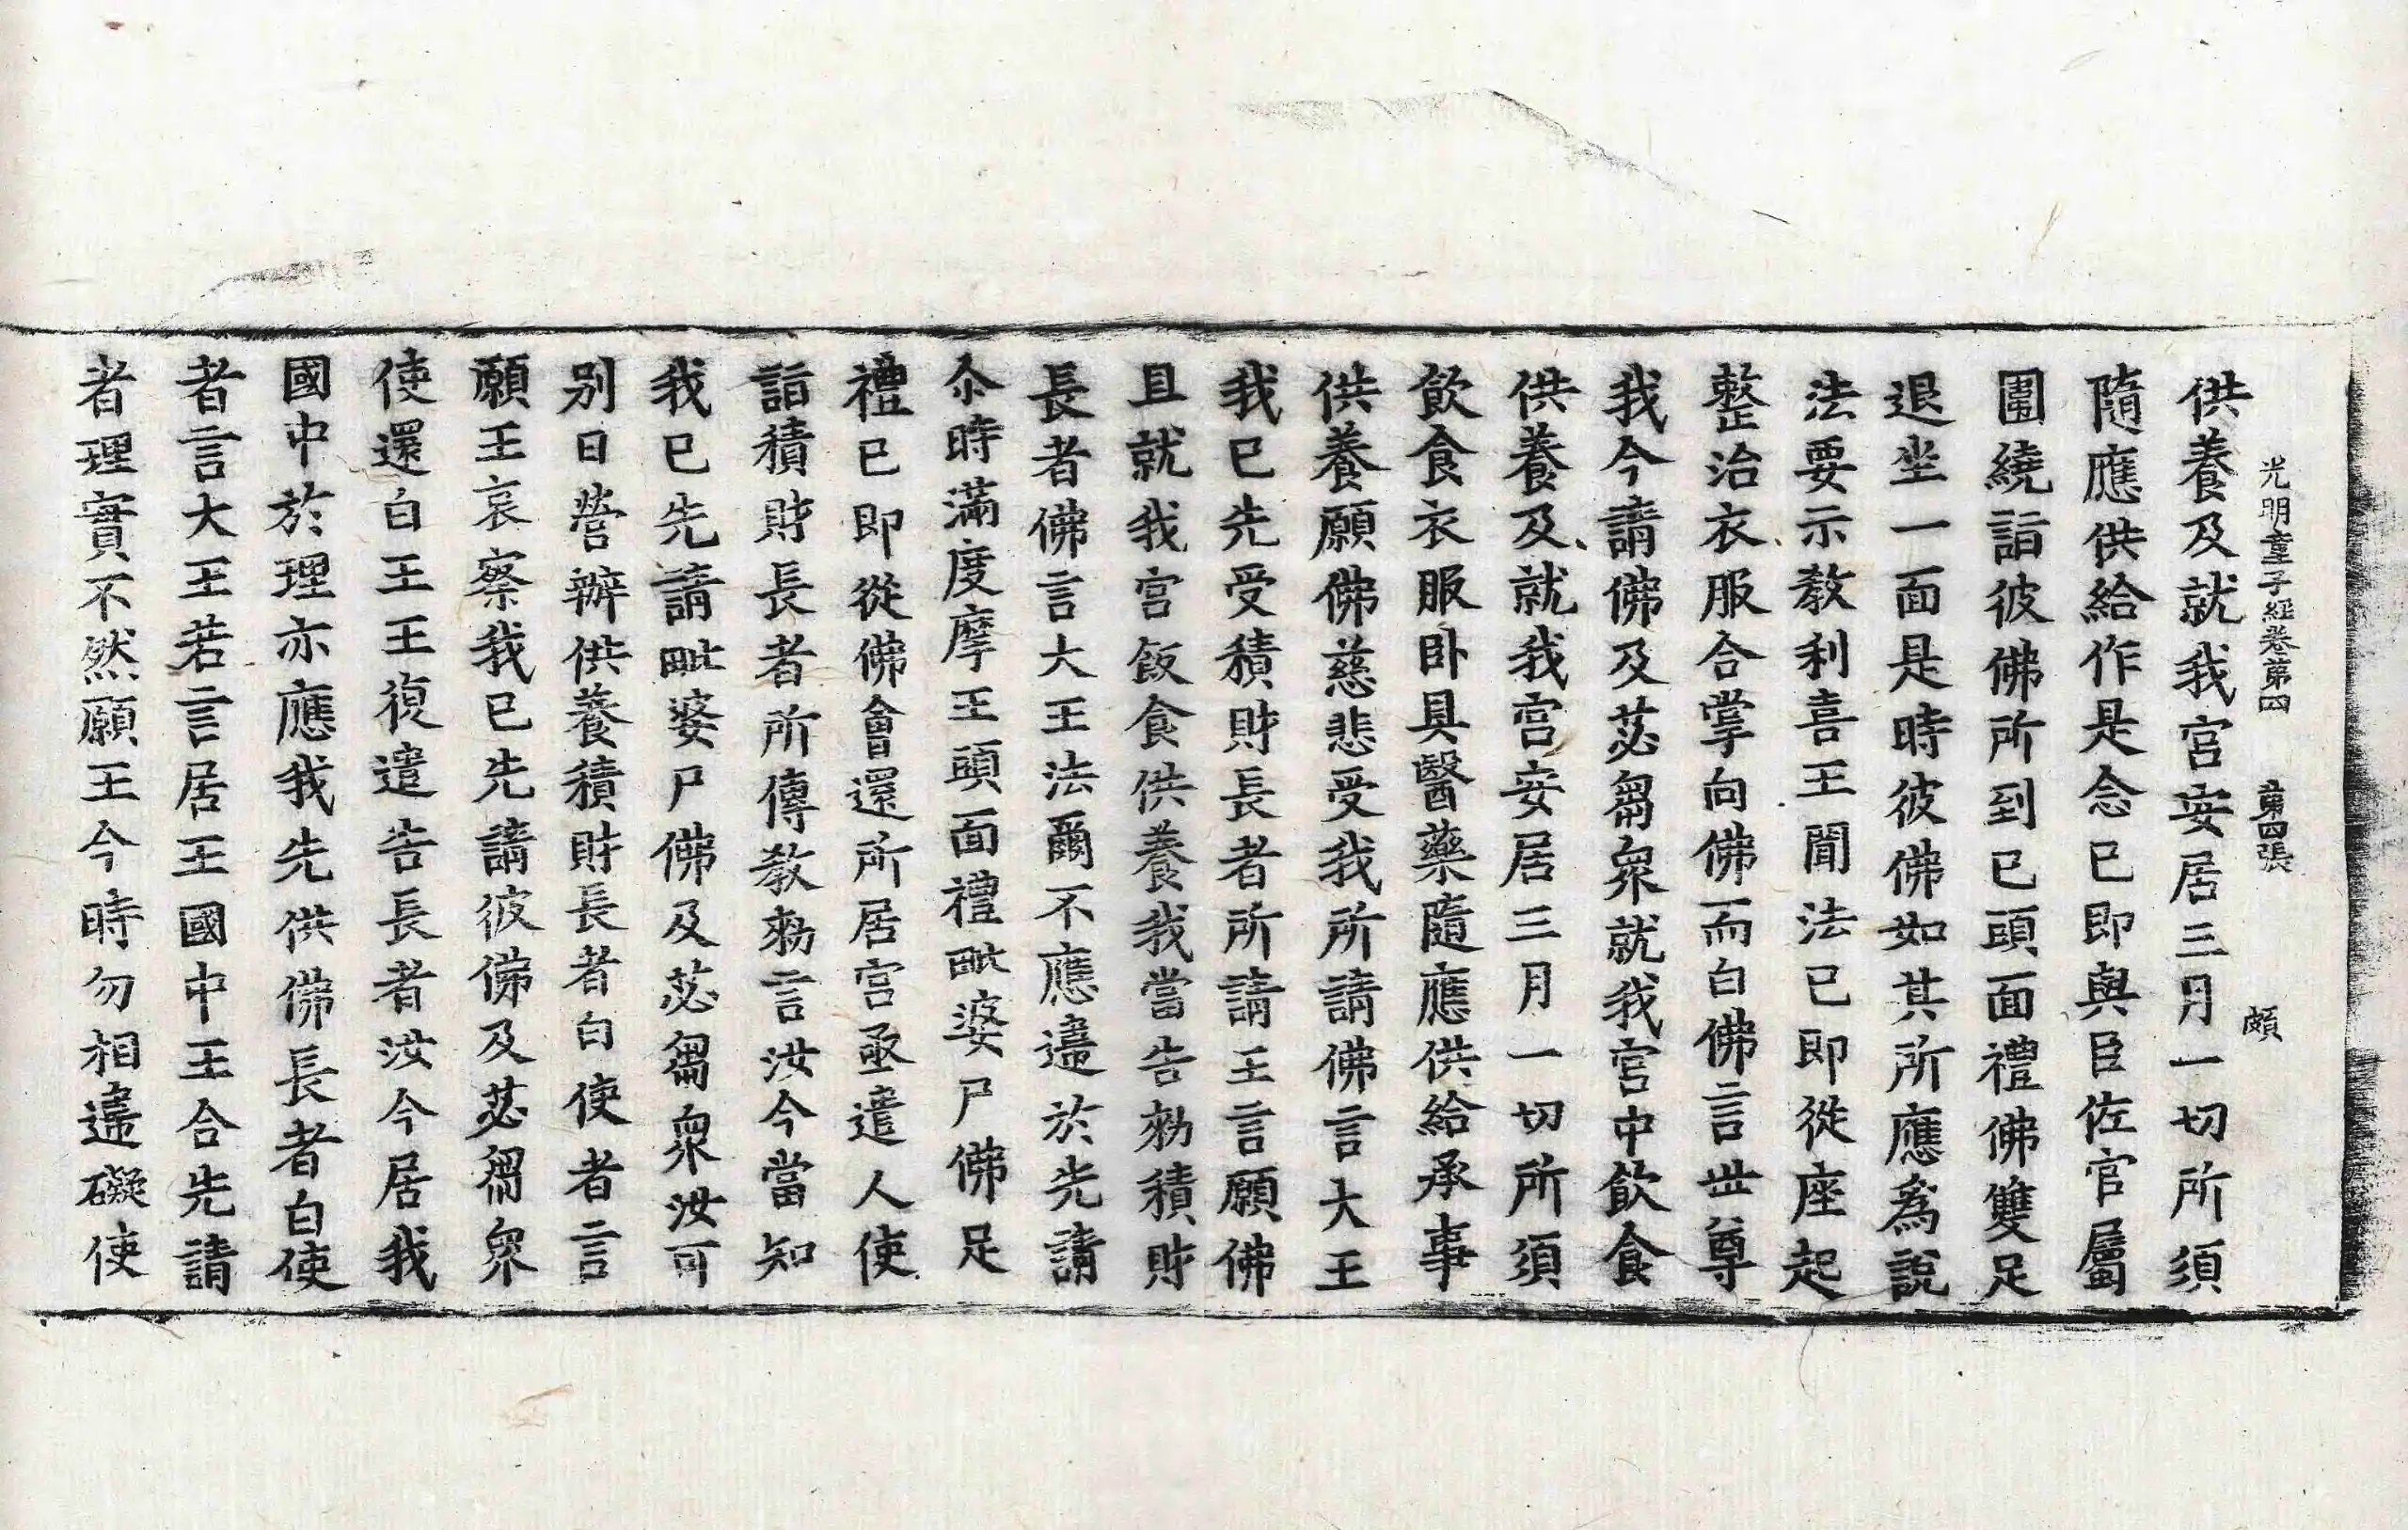 光明童子經卷第四　第四張　頗
供養及就我宮安居三月一切所須
隨應供給作是念已即與臣佐官屬
圍繞詣彼佛所到已頭面禮佛雙足
退坐一面是時彼佛如其所應為說
法要示教利喜王聞法已即從座起
整治衣服合掌向佛而白佛言世尊
我今請佛及苾芻衆就我宮中飲食
供養及就我宮安居三月一切所須
飲食衣服卧具醫藥隨應供給承事
供養願佛慈悲受我所請佛言大王
我已先受積財長者所請王言願佛
且就我宮飯食供養我當告勑積財
長者佛言大王法爾不應違於先請
尒時滿度摩王頭面禮毗婆尸佛足
禮已即從佛會還所居宮亟遣人使
詣積財長者所傳教勑言汝今當知
我已先請毗婆尸佛及苾芻衆汝可
別日營辦供養積財長者白使者言
願王哀察我已先請彼佛及苾芻衆
使還白王王復遣告長者汝今居我
國中於理亦應我先供佛長者白使
者言大王若言居王國中王合先請
者理實不然願王今時勿相違礙使